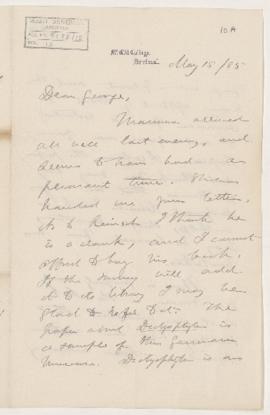 10A
McGill College,
Montreal.
May 15/85
Dear George,
Mamma arrived
all well last evening, and
seems to have had a
pleasant time. William
handed me your letter.
As to Reinsch I think he
is a crank, and I cannot
afford to buy his book.
If the Survey will add
it to its library I may be
glad to refer to it. The
paper about Dictyophyton is
a sample of this Germanic
Dictyophyton is an